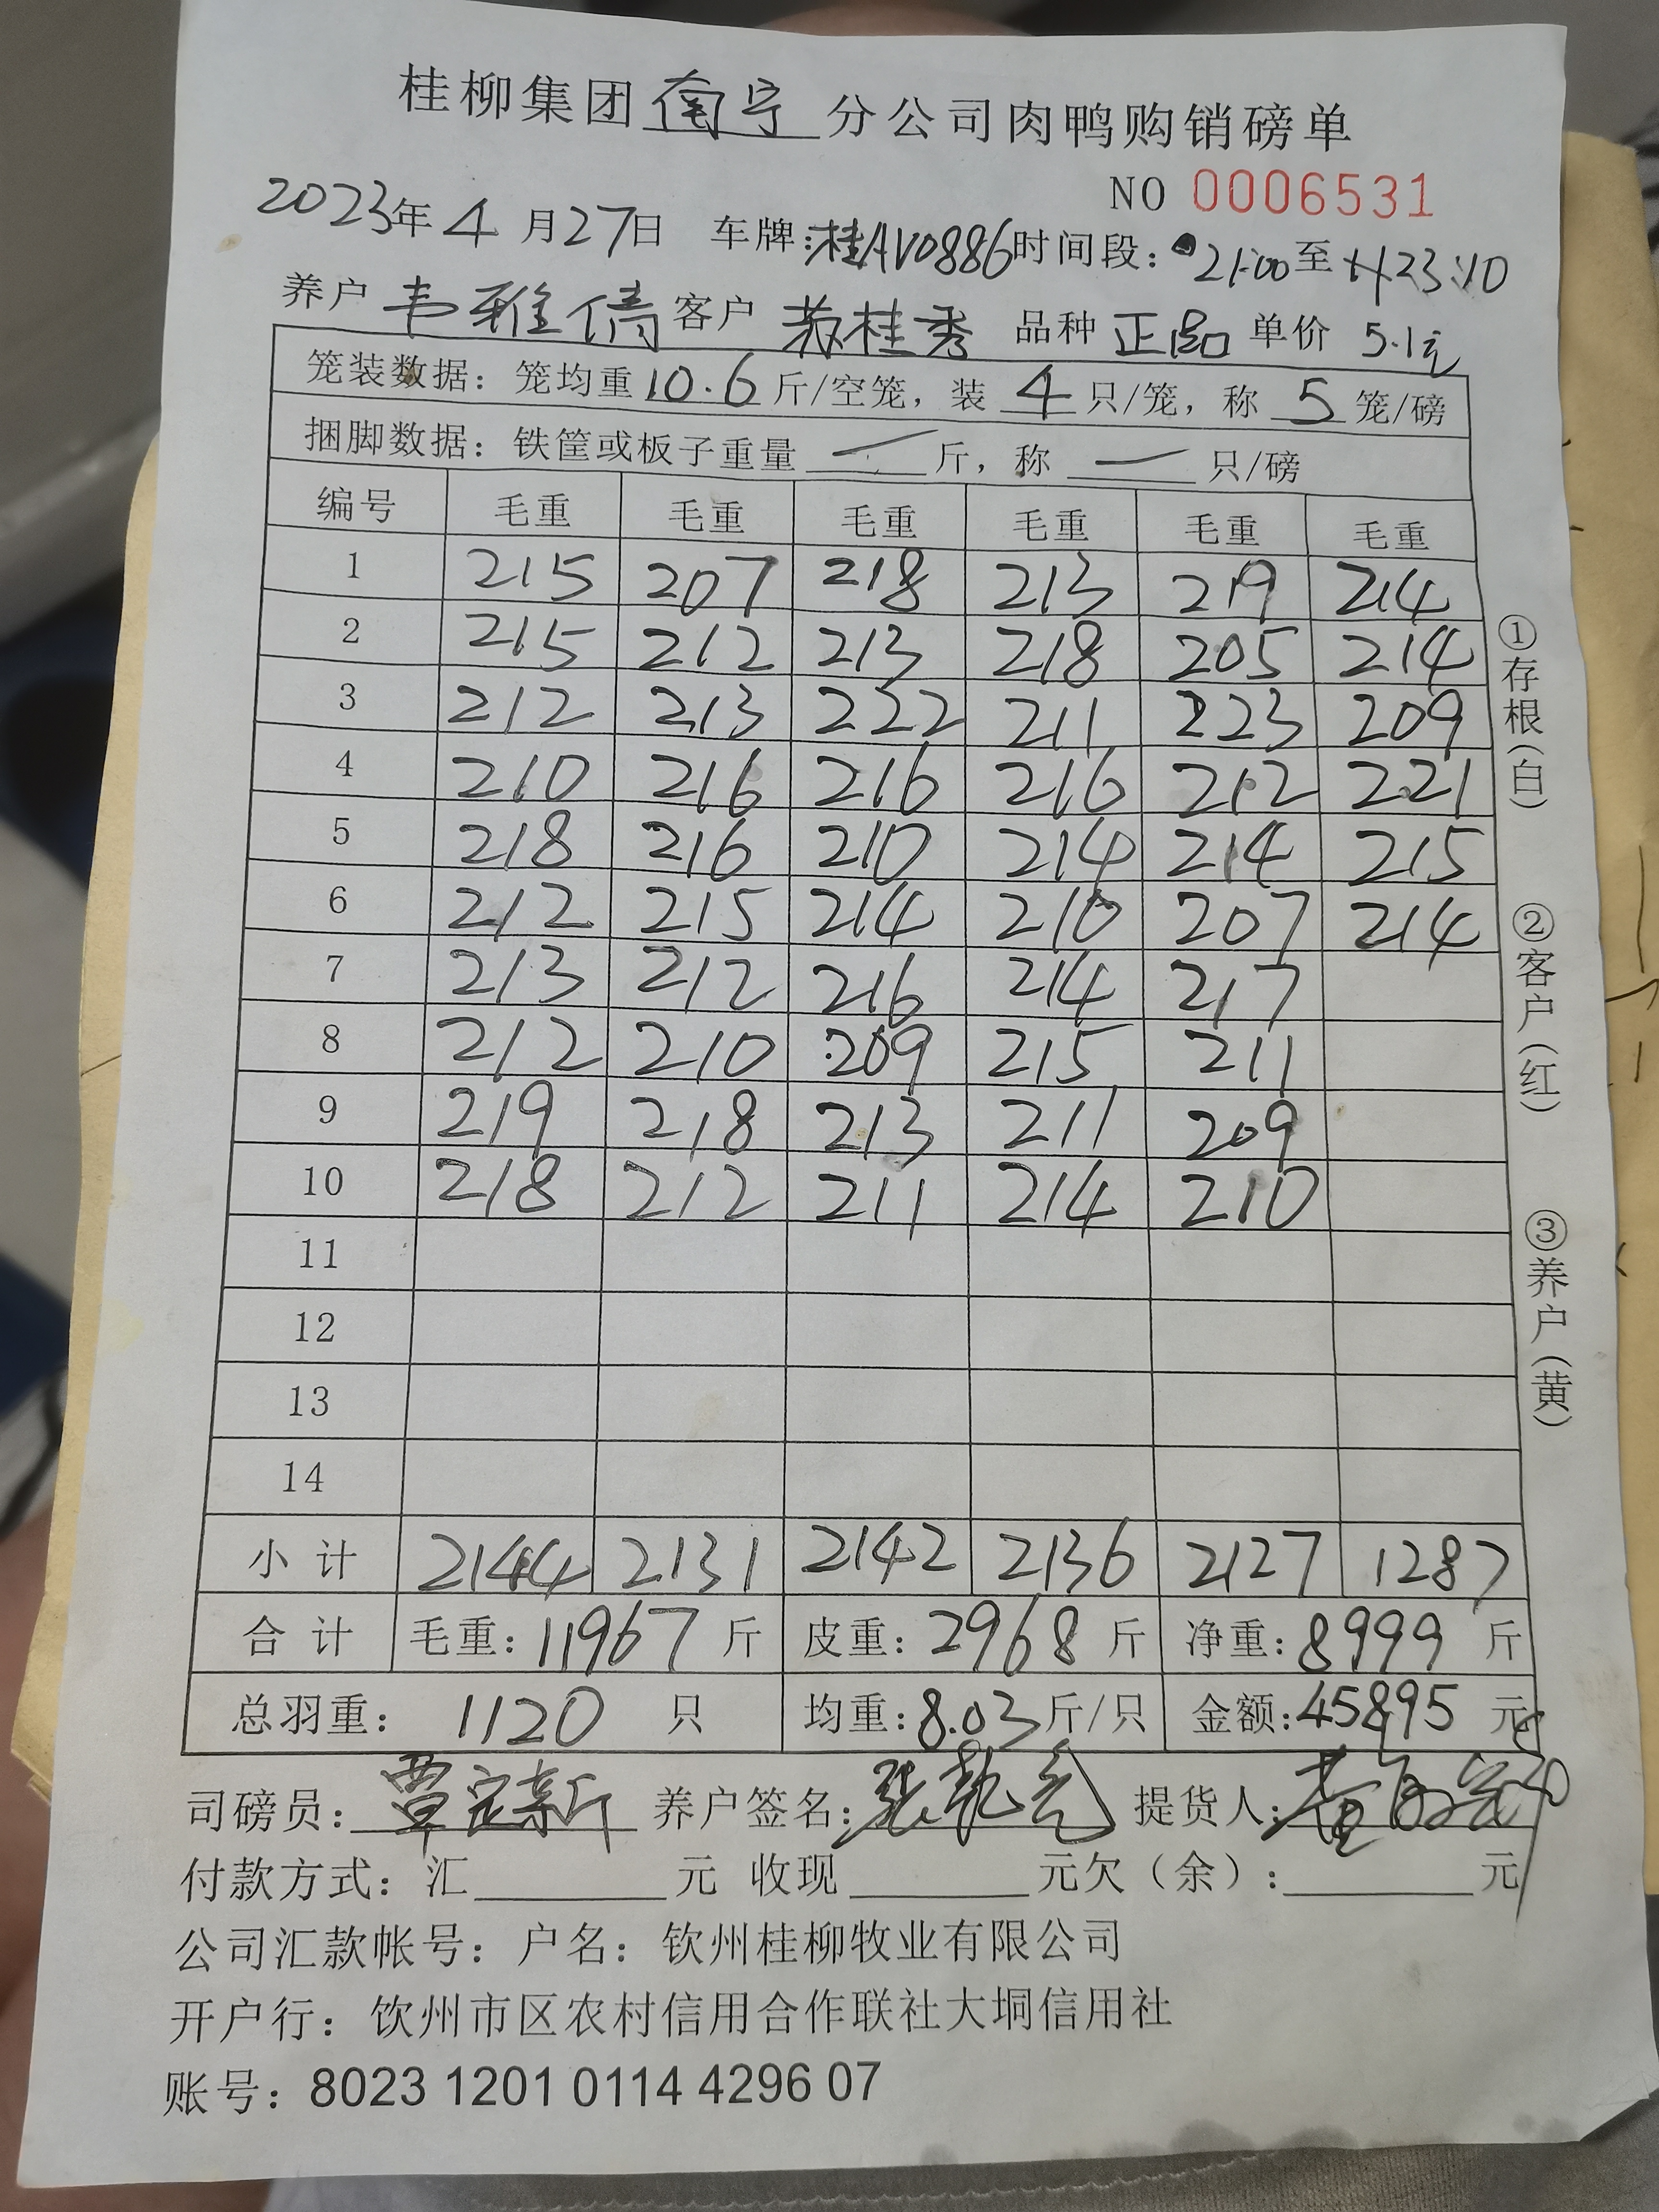 桂柳集团南宁分公司肉鸭购销磅单
NO 0006531
2023年4月27日 车牌:桂AV0886 时间段: 21:00至23:10
养户 韦雅倩 客户 苏桂秀 品种 正品 单价 5.1元
笼装数据: 笼均重10.6斤/空笼, 装 4 只/笼, 称 5 笼/磅
捆脚数据: 铁筐或板子重量 — 斤, 称 — 只/磅
编号 毛重 毛重 毛重 毛重 毛重 毛重
1 215 207 218 213 219 214
2 215 212 213 218 205 214
3 212 213 222 211 223 209
4 210 216 216 216 212 221
5 218 216 210 214 214 215
6 212 215 214 210 207 214
7 213 212 216 214 217
8 212 210 209 215 211
9 219 218 213 211 209
10 218 212 211 214 210
11
12
13
14
小计 2144 2131 2142 2136 2127 1287
合计 毛重: 11967 斤 皮重: 2968 斤 净重: 8999 斤
总羽重: 1120 只 均重: 8.03 斤/只 金额: 45895 元
司磅员: 覃定新 养户签名: 张乾 提货人:
付款方式: 汇 元 收现 元欠(余): 元
公司汇款帐号: 户名: 钦州桂柳牧业有限公司
开户行: 钦州市区农村信用合作联社大垌信用社
账号: 8023 1201 0114 4296 07
①存根(白) ②客户(红) ③养户(黄)